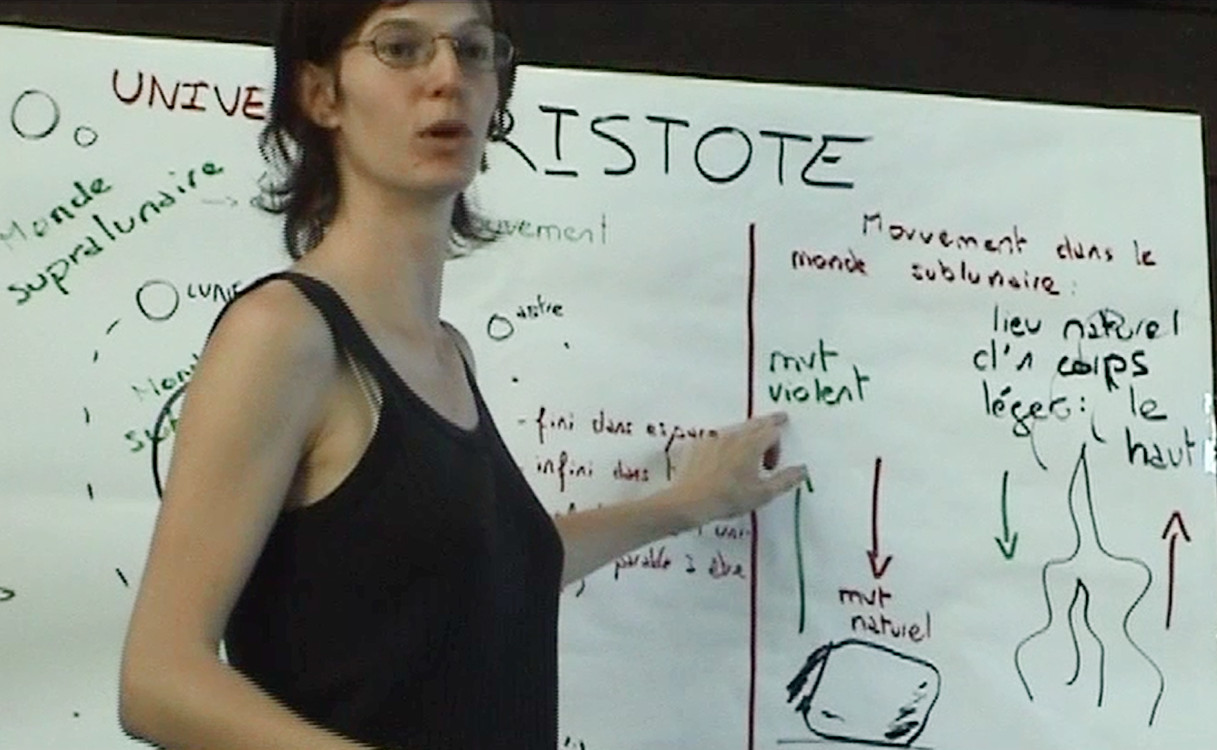 UNIVE RISTOTE
Monde
supralunaire
LUNE
vement
astre
- fini dans espace
- infini dans
parable à être
Mouvement dans le
monde sublunaire :
mvt
violent
mvt
naturel
lieu naturel
d'1 corps
léger : le
haut